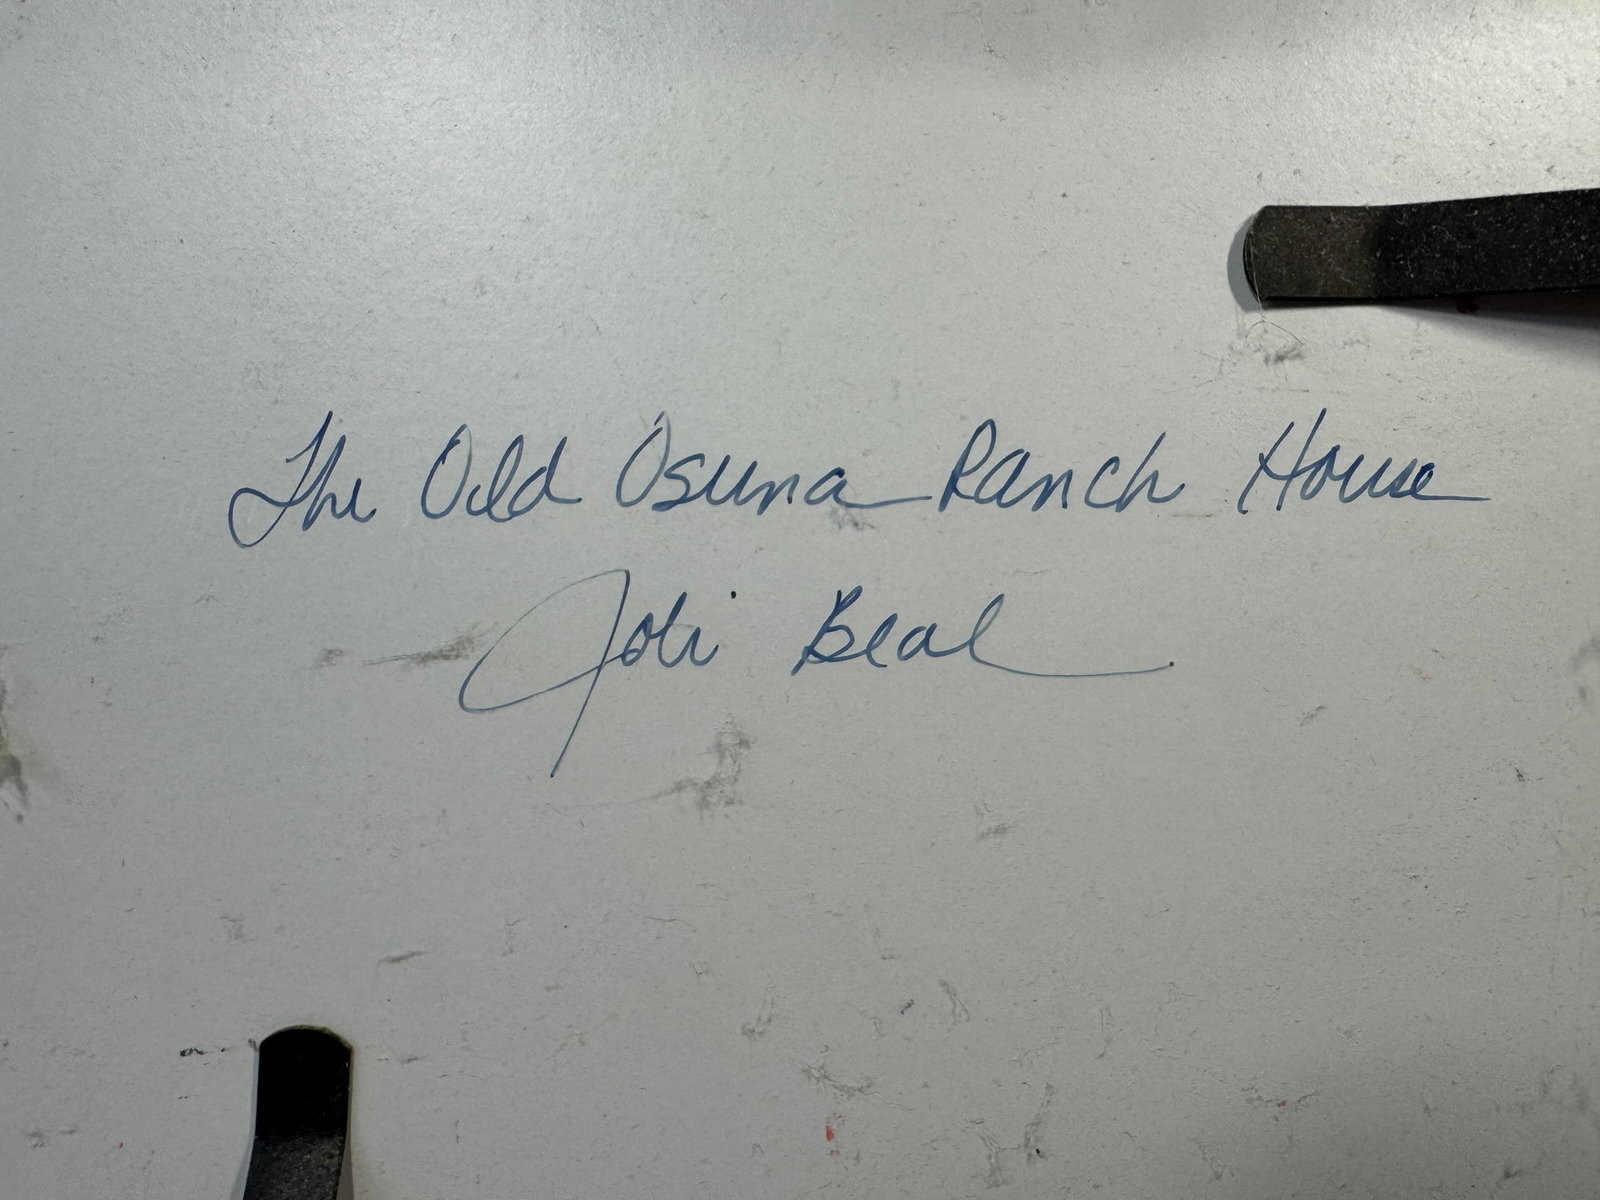 The Old Osuna Ranch House
Jodi Beal